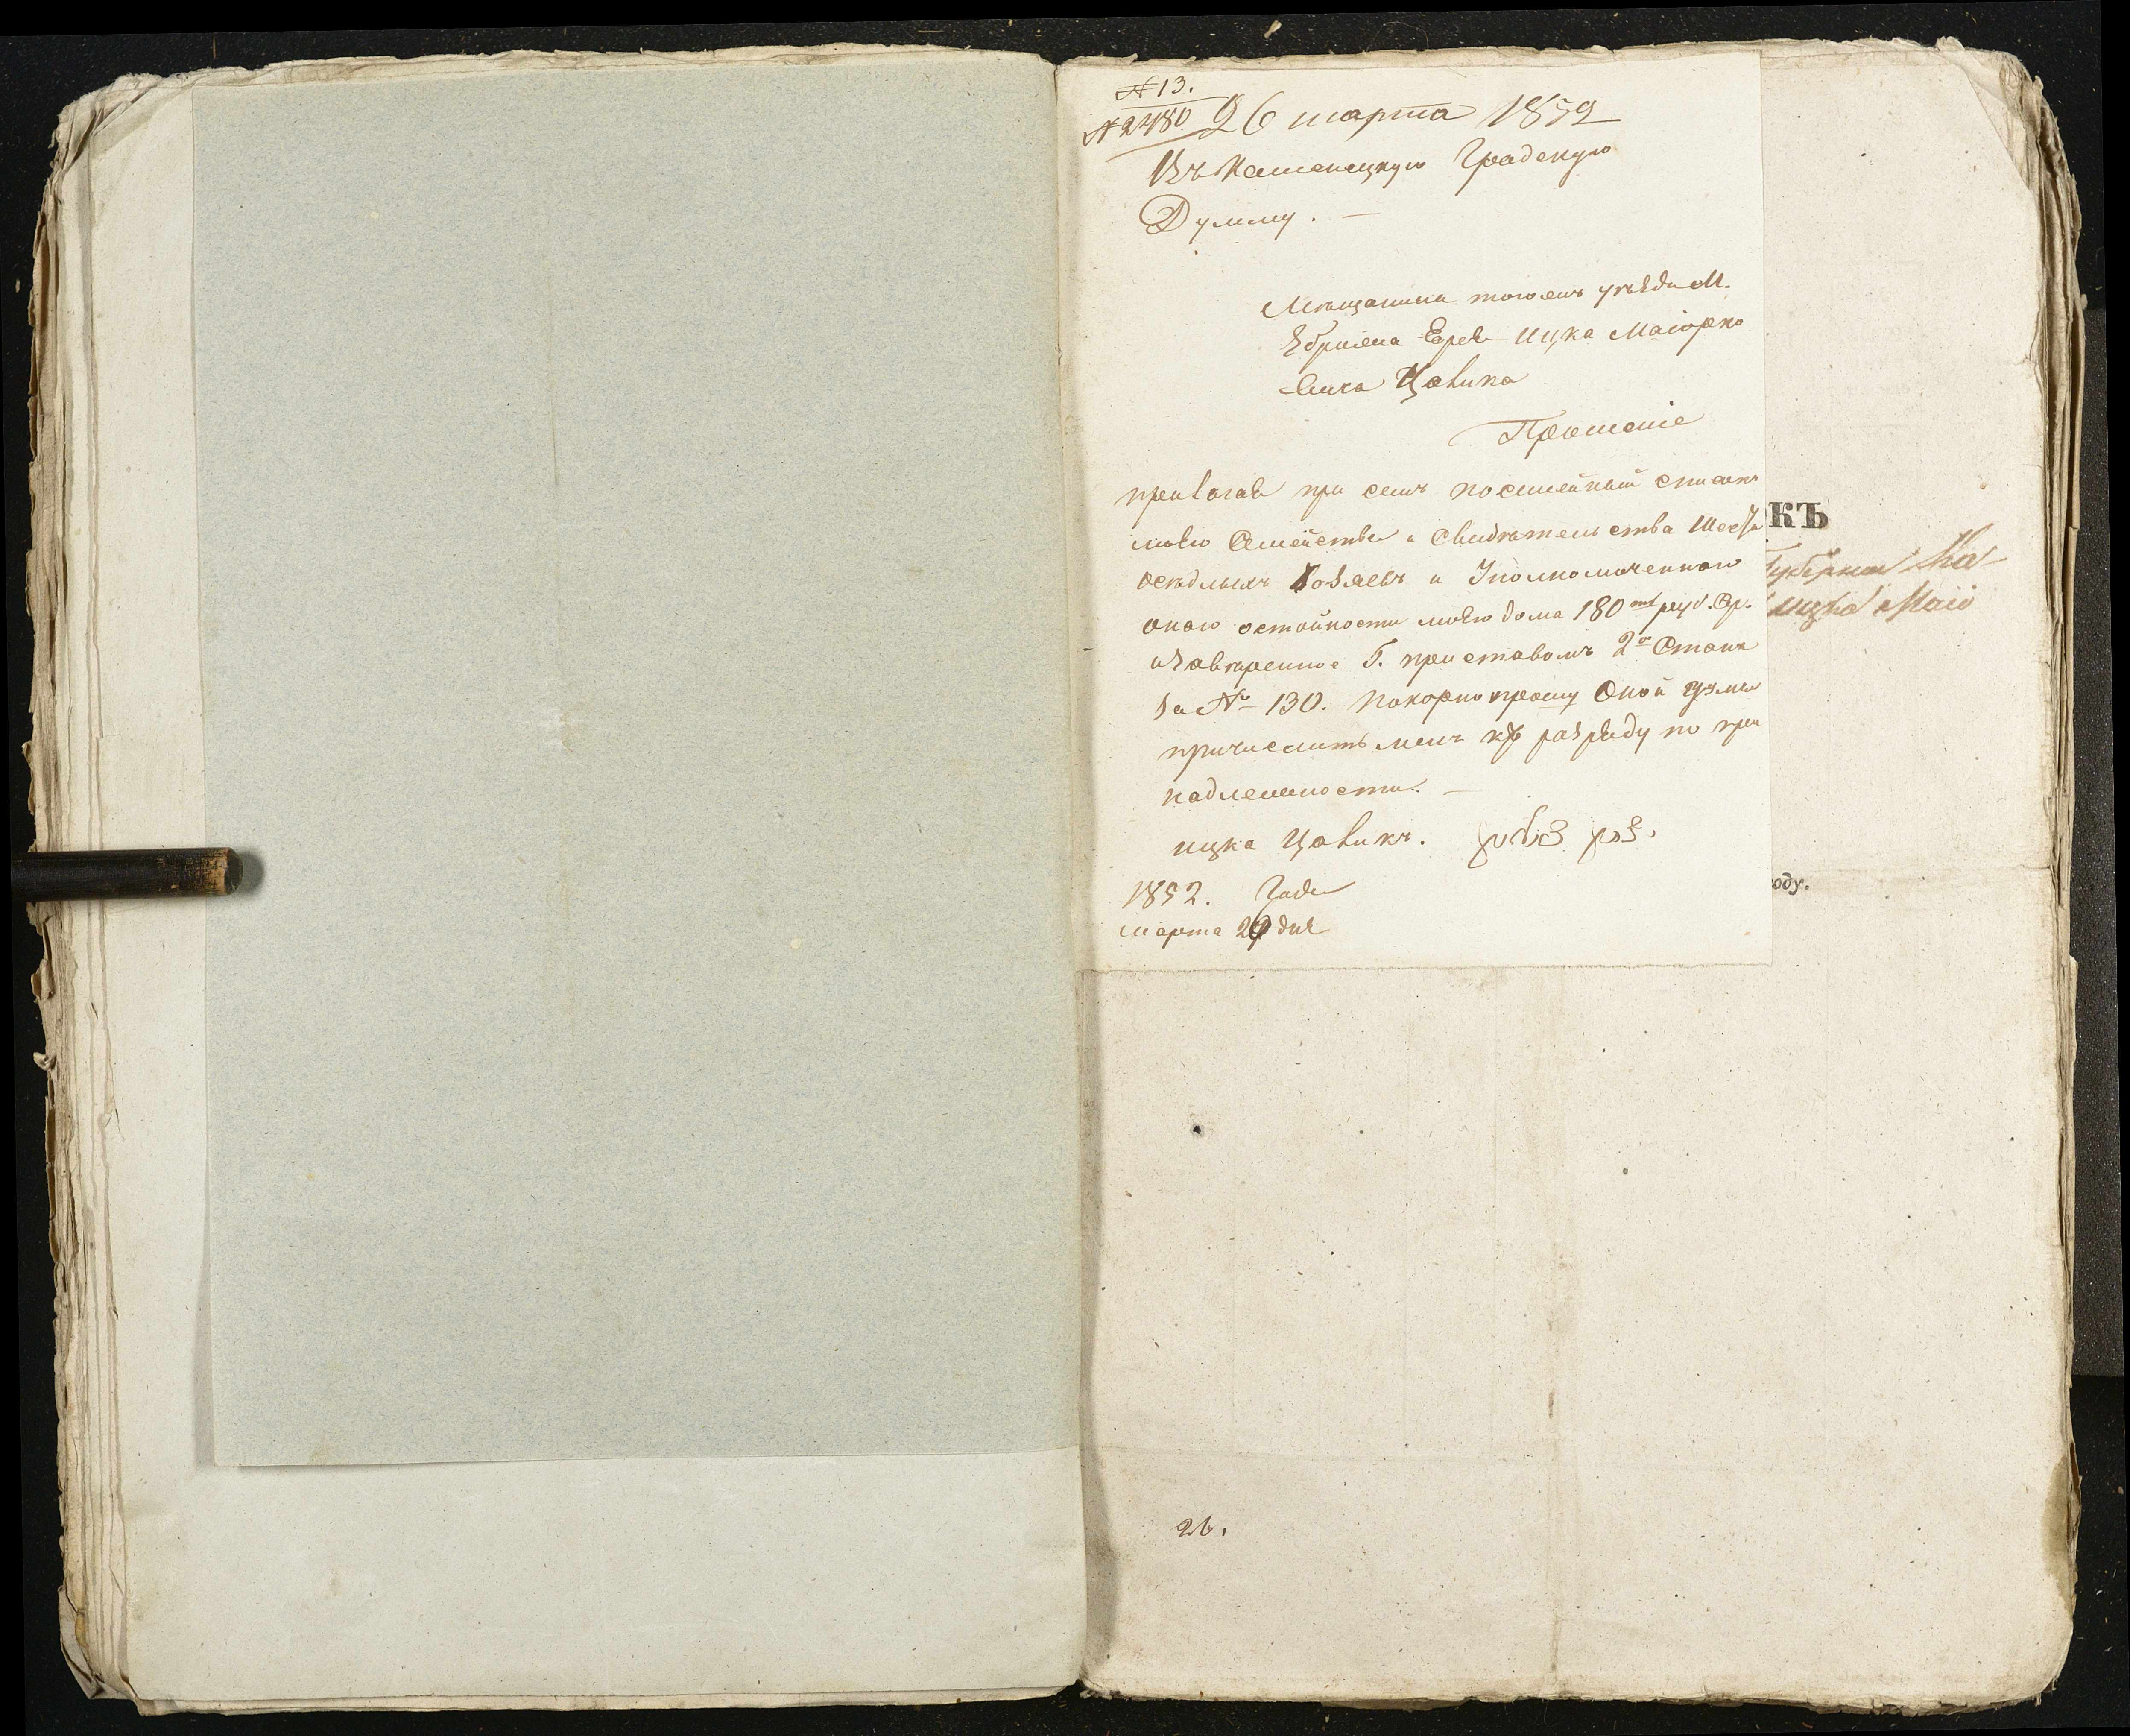 № 13.
№ 2480 26 марта 1852
Въ Каменецкую Градскую
Думму. —
Мѣщанина тогожъ уѣзда М.
Збрижа Еврея Ицка Маіорко
вича Цовика
Прошеніе
прилагая при семъ посемейный списокъ
моего Семейства и Свидѣтельства шести
осѣдлыхъ хозяевъ и Уполномоченного
оного остоимости моего дома 180 руб. Сер.
и завѣренное Г. приставомъ 2го Стана
за № 130. покорно прошу Оной думы
причислить мене къ разряду по при
надлежности. —
ицка Цовикъ. איצק צאוויק
1852. Года
марта 26 дня
КЪ
Губерніи Ка
ицка Маіо
оду.
26.